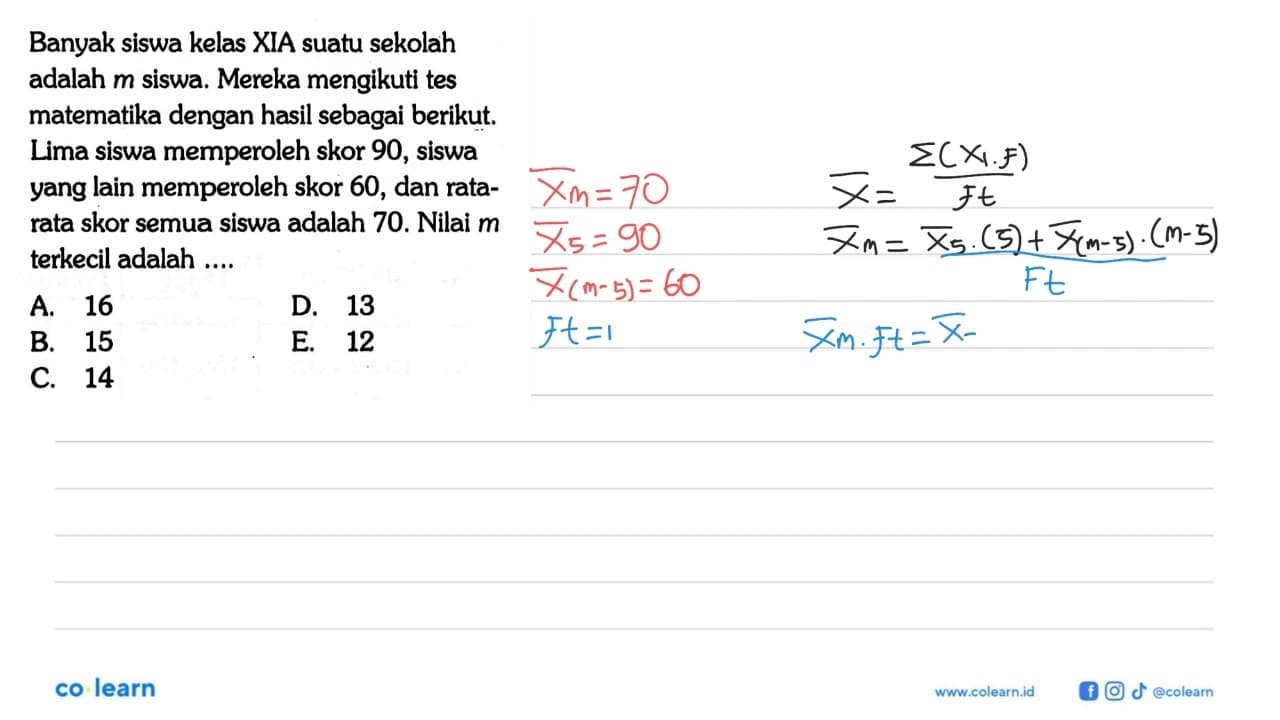 Banyak siswa kelas XIA suatu sekolah
adalah m siswa. Mereka mengikuti tes
matematika dengan hasil sebagai berikut.
Lima siswa memperoleh skor 90, siswa
yang lain memperoleh skor 60, dan rata-
rata skor semua siswa adalah 70. Nilai m
terkecil adalah ....
A. 16
B. 15
C. 14
D. 13
E. 12
X̅m = 70
X̅5 = 90
X̅(m-5) = 60
Ft = 1
X̅ = Σ(X1.F) / Ft
X̅m = X̅5.(5) + X̅(m-5).(m-5) / Ft
X̅m.Ft = X̅-
co learn
www.colearn.id
@colearn